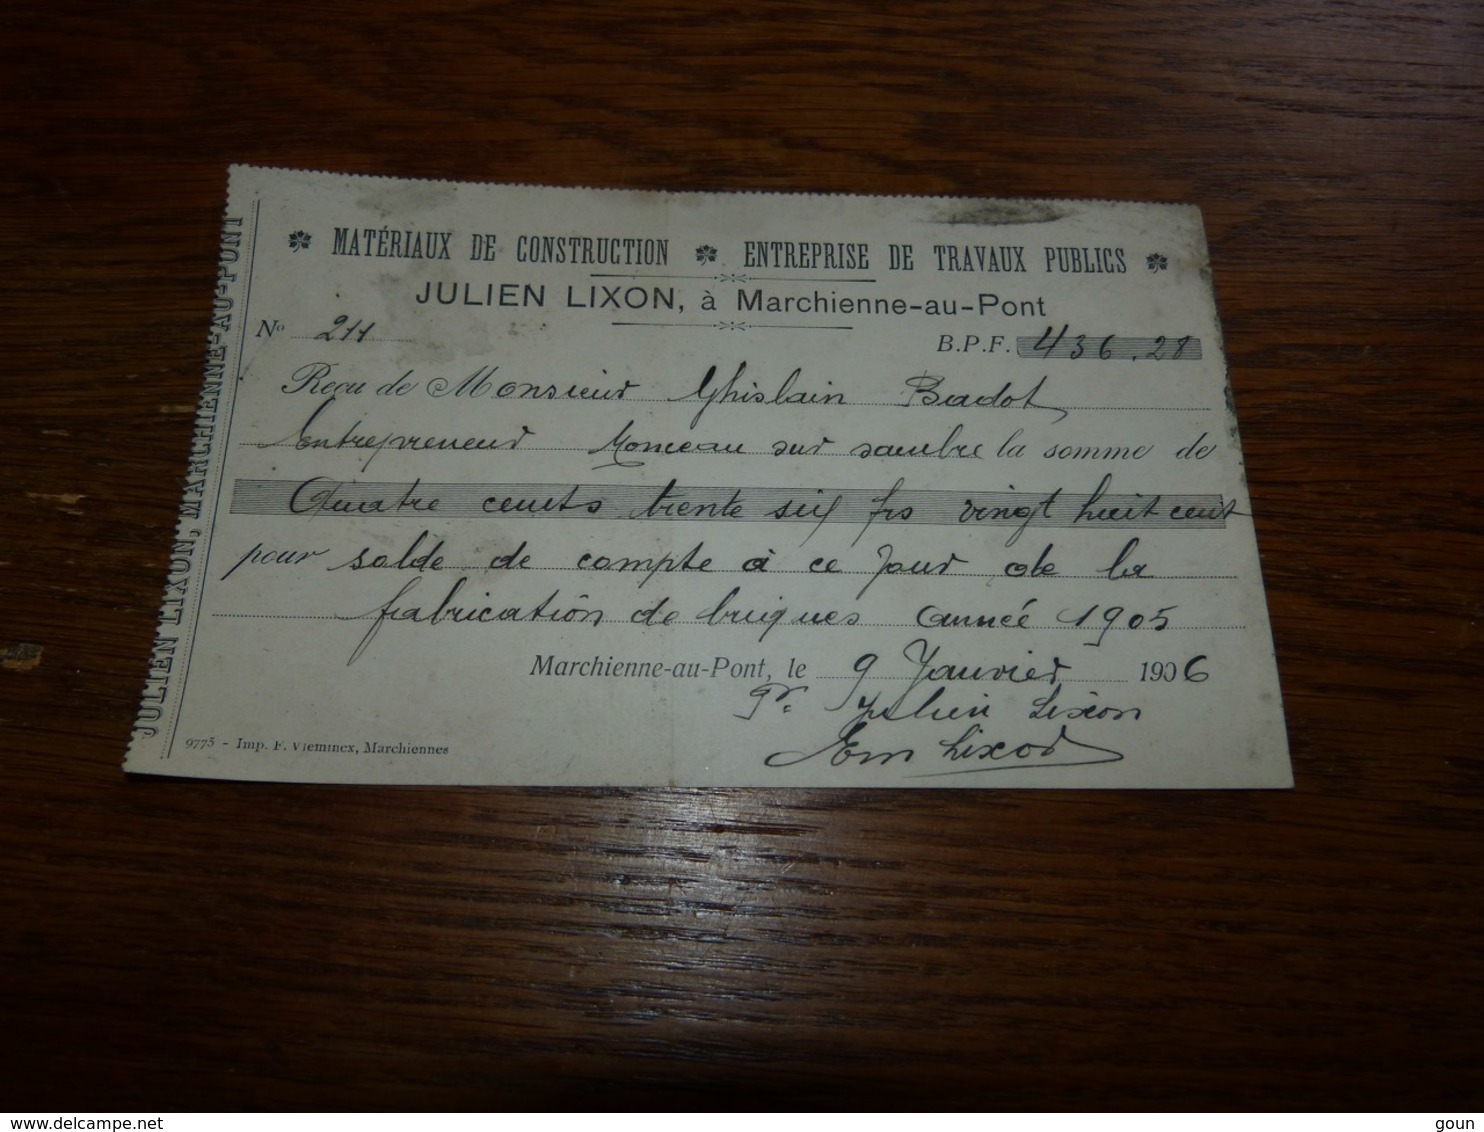 MATÉRIAUX DE CONSTRUCTION ENTREPRISE DE TRAVAUX PUBLICS
JULIEN LIXON, à Marchienne-au-Pont
No 211 B.P.F. 436.28
Reçu de Monsieur Ghislain Badot
Entrepreneur Monceau sur sambre la somme de
Quatre cents trente six frs vingt huit cent
pour solde de compte à ce Jour de la
fabrication de briques année 1905
Marchienne-au-Pont, le 9 Janvier 1906
pr. Julien Lixon
Em Lixon
9775 - Imp. F. Vleminex, Marchiennes
JULIEN LIXON, MARCHIENNE-AU-PONT
www.delcampe.net
goun